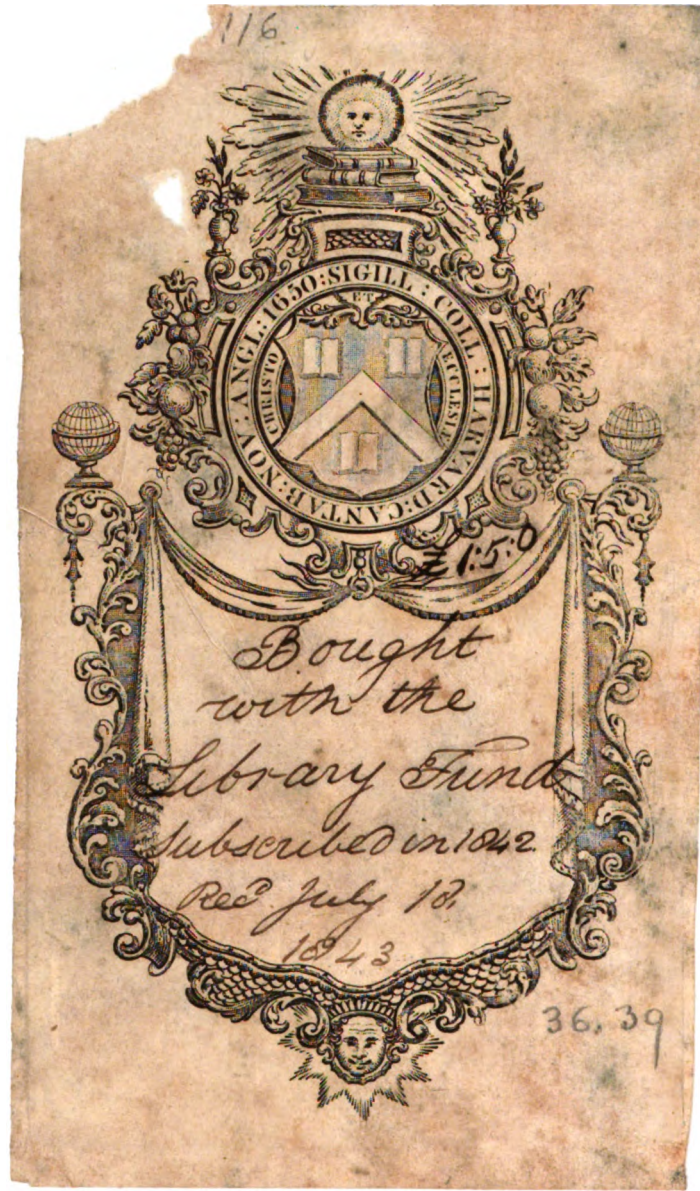 116
SIGILL : COLL : HARVARD : CANTAB : NOV : ANGL : 1650 :
CHRISTO ET ECCLESIÆ
£1:5:0
Bought
with the
Library Fund
Subscribed in 1842
Recd. July 18
1843
36.39